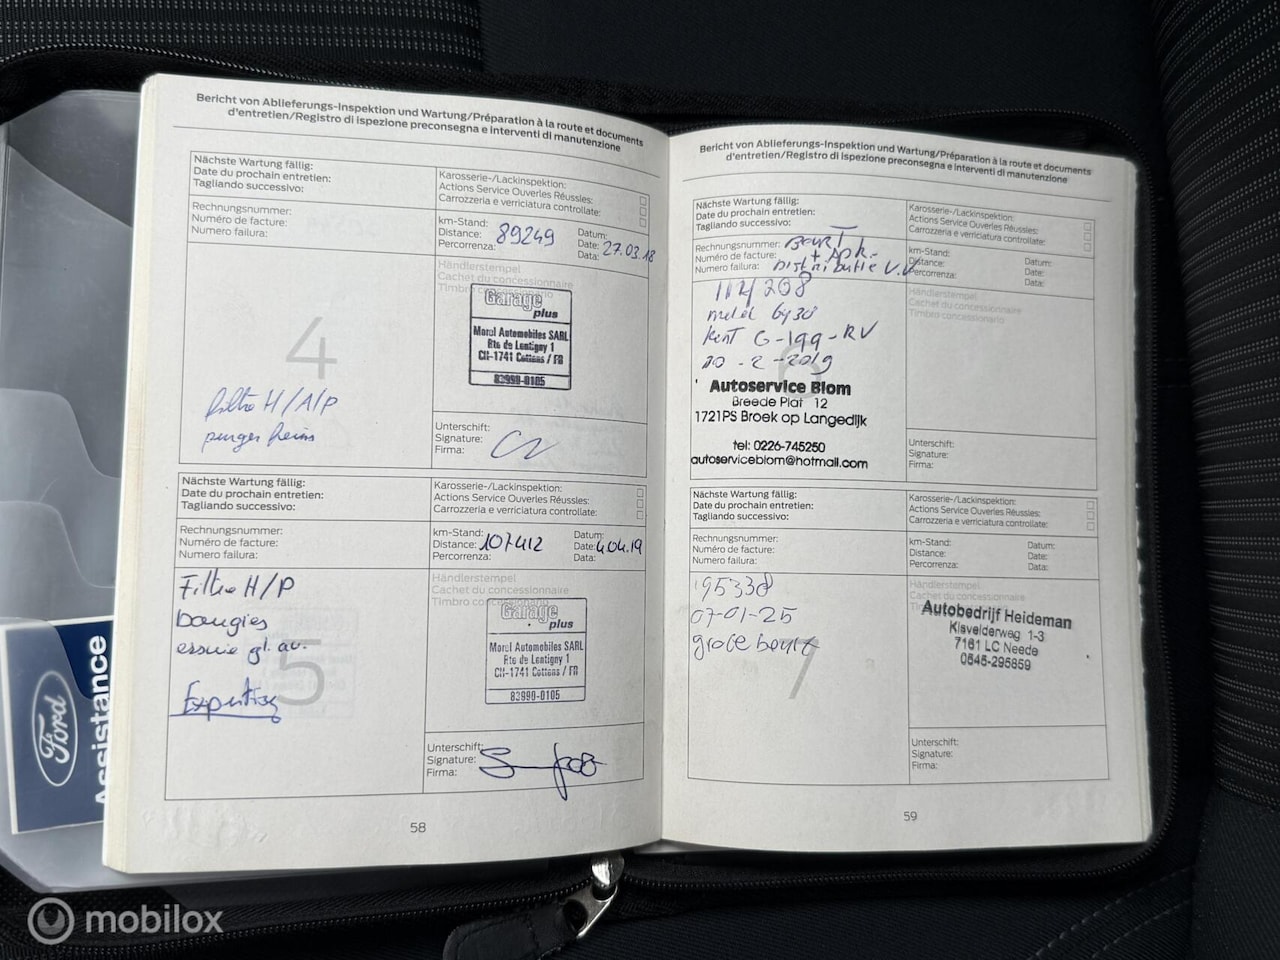 Bericht von Ablieferungs-Inspektion und Wartung/Préparation à la route et documents
d'entretien/Registro di ispezione preconsegna e interventi di manutenzione
Nächste Wartung fällig:
Date du prochain entretien:
Tagliando successivo:
Karosserie-/Lackinspektion:
Actions Service Ouverles Réusles:
Carrozzeria e verniciatura controllate:
Rechnungsnummer:
Numéro de facture:
Numero failura:
km-Stand:
Distance: 89249
Percorrenza:
Datum:
Date: 27.03.18
Data:
4
filtre H/A/P
purger freins
Händlerstempel
Cachet du concessionnaire
Timbro concessionario
Garage
plus
Moral Automobiles SARL
Rte de Lentigny 1
CH-1741 Cottens / FR
83990-0105
Unterschrift:
Signature:
Firma:
Nächste Wartung fällig:
Date du prochain entretien:
Tagliando successivo:
Karosserie-/Lackinspektion:
Actions Service Ouverles Réusles:
Carrozzeria e verniciatura controllate:
Rechnungsnummer:
Numéro de facture:
Numero failura:
km-Stand:
Distance: 107412
Percorrenza:
Datum:
Date: 4.04.19
Data:
Filtre H/P
bougies
essuie gl. av.
5
Expertise
Händlerstempel
Cachet du concessionnaire
Timbro concessionario
Garage
plus
Moral Automobiles SARL
Rte de Lentigny 1
CH-1741 Cottens / FR
83990-0105
Unterschrift:
Signature:
Firma:
58
Bericht von Ablieferungs-Inspektion und Wartung/Préparation à la route et documents
d'entretien/Registro di ispezione preconsegna e interventi di manutenzione
Nächste Wartung fällig:
Date du prochain entretien:
Tagliando successivo:
Karosserie-/Lackinspektion:
Actions Service Ouverles Réusles:
Carrozzeria e verniciatura controllate:
Rechnungsnummer: Beurt
Numéro de facture: + APK
Numero failura: Distributie V.V
km-Stand:
Distance:
Percorrenza:
Datum:
Date:
Data:
114208
Kent G-199-RV
20-2-2019
Autoservice Blom
Breede Plat 12
1721PS Broek op Langedijk
tel: 0226-745250
autoserviceblom@hotmail.com
Händlerstempel
Cachet du concessionnaire
Timbro concessionario
Unterschrift:
Signature:
Firma:
Nächste Wartung fällig:
Date du prochain entretien:
Tagliando successivo:
Karosserie-/Lackinspektion:
Actions Service Ouverles Réusles:
Carrozzeria e verniciatura controllate:
Rechnungsnummer:
Numéro de facture:
Numero failura:
km-Stand:
Distance:
Percorrenza:
Datum:
Date:
Data:
195338
07-01-25
grote beurt
7
Händlerstempel
Cachet du concessionnaire
Autobedrijf Heideman
Kisvelderweg 1-3
7161 LC Neede
0545-295859
Unterschrift:
Signature:
Firma:
59
Ford
Assistance
mobilox